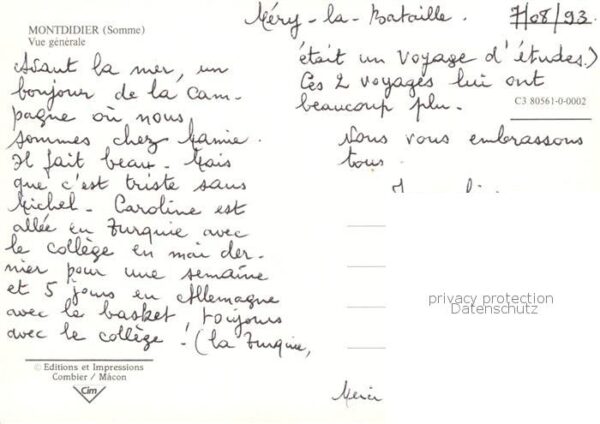 MONTDIDIER (Somme)
Vue générale
Méry-la-Bataille. 7/08/93
Avant la mer, un
bonjour de la cam-
pagne où nous
sommes chez Mamie.
Il fait beau. Mais
que c'est triste sans
Michel. Caroline est
allée en Turquie avec
le collège en mai der-
nier pour une semaine
et 5 jours en Allemagne
avec le basket, toujours
avec le collège ! (la Turquie,
était un voyage d'études.)
Ces 2 voyages lui ont
beaucoup plu.
C3 80561-0-0002
Nous vous embrassons
tous.
privacy protection
Datenschutz
© Editions et Impressions
Combier / Mâcon
Cim
Merci